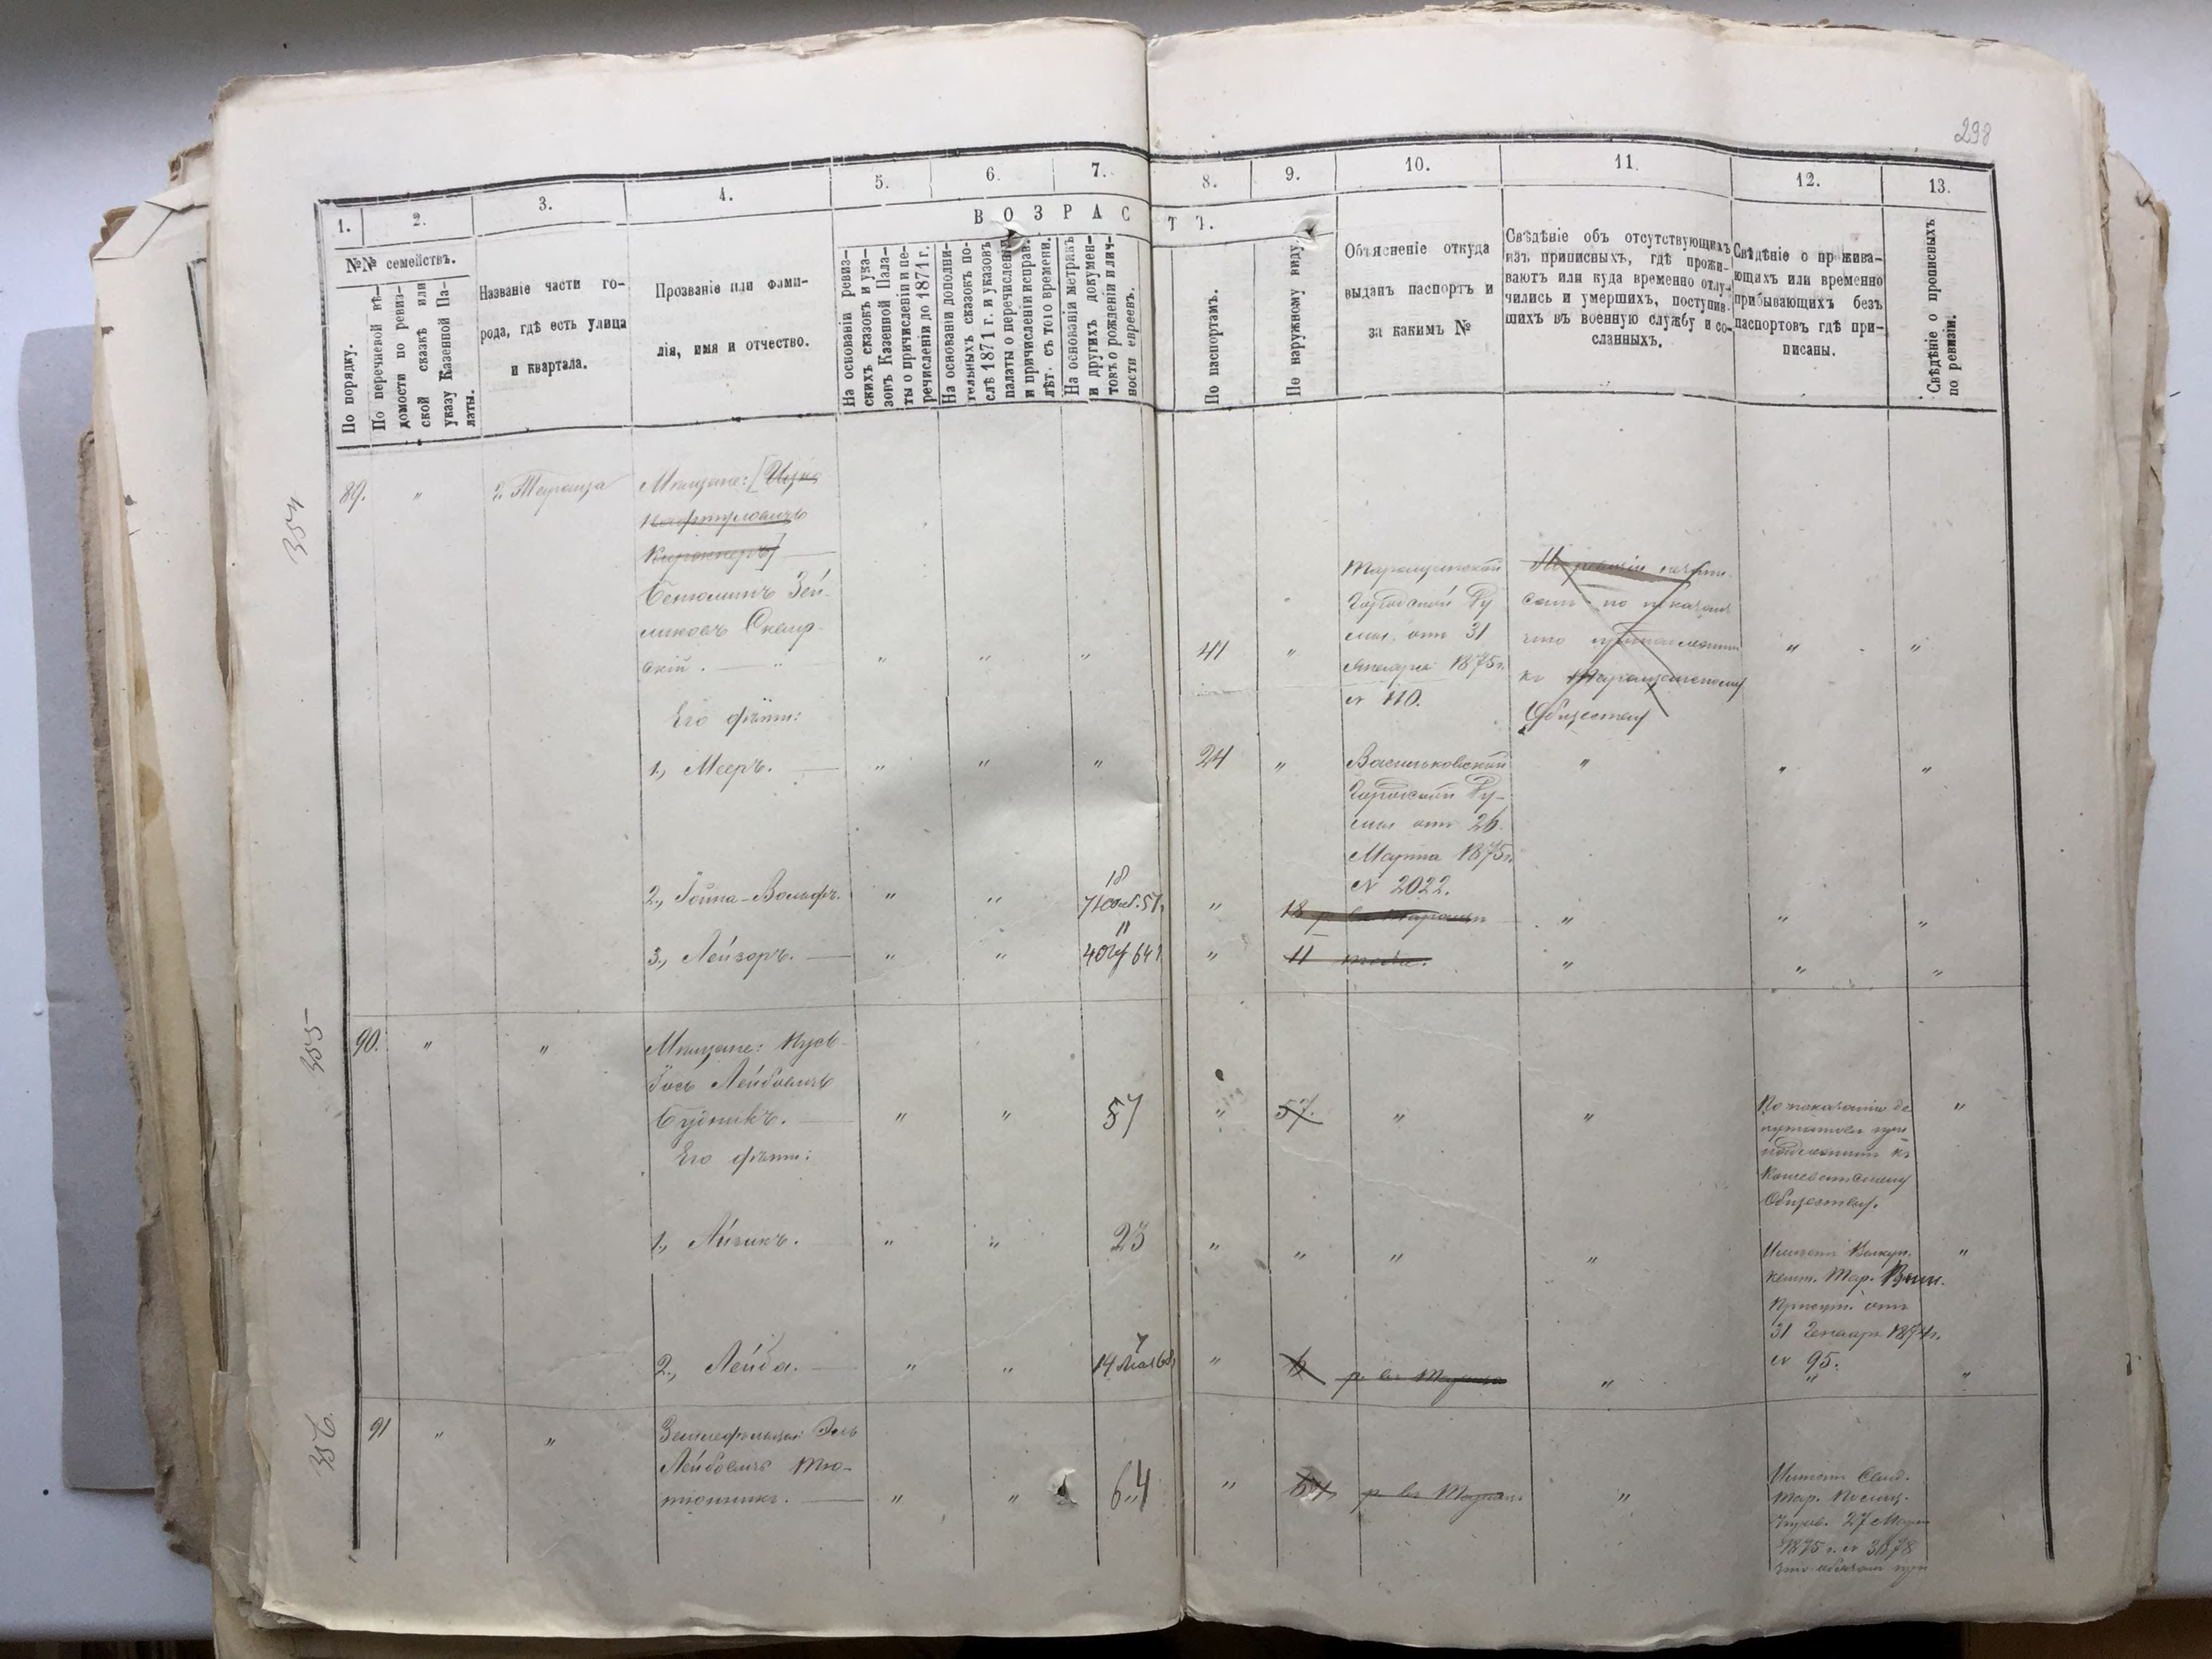 298
1.
2.
3.
4.
5.
6.
7.
8.
9.
10.
11.
12.
13.
ВОЗРАСТЪ.
№№ семействъ.
По порядку.
По перечневой вѣ-
домости по ревиз-
ской сказкѣ или
указу Казенной Па-
латы.
Названіе части го-
рода, гдѣ есть улица
и квартала.
Прозваніе или фами-
лія, имя и отчество.
На основаніи ревиз-
скихъ сказокъ и ука-
зовъ Казенной Пала-
ты о причисленіи и пе-
речисленіи до 1871 г.
На основаніи дополни-
тельныхъ сказокъ по-
слѣ 1871 г. и указовъ
палаты о перечисленіи
и причисленіи исправ.
лѣт. съ того времени.
На основаніи метрикъ
и другихъ докумен-
товъ о рожденіи и лич-
ности евреевъ.
По паспортамъ.
По наружному виду
Объясненіе откуда
выданъ паспортъ и
за какимъ №
Свѣдѣніе объ отсутствующихъ
изъ приписныхъ, гдѣ прожи-
ваютъ или куда временно отлу-
чились и умершихъ, поступив-
шихъ въ военную службу и со-
сланныхъ.
Свѣдѣніе о прожива-
ющихъ или временно
прибывающихъ безъ
паспортовъ гдѣ при-
писаны.
Свѣдѣніе о прописныхъ
по ревизіи.
354
89. " г. Тараща Мѣщане:
Бенюминъ Зей-
ликовъ Сквир-
скій. " " " 41 "
Таращанской
Городской Ду
мы отъ 31
Января 1875 г.
№ 110.
что
къ Таращанскому
Обществу
" "
Его дѣти:
1., Мееръ. " " " 24 "
Васильковской
Городской Ду-
мы отъ 26
Марта 1875 г.
№ 2022.
" " "
2., Іойна-Вольфъ. " " 18
7 " 18 р. въ Таращѣ " " "
3., Лейзоръ. " " 11
4 " 11 " " "
355
90. " " Мѣщане:
Іось Лейбовичъ
Будникъ. " " 57 " 57. " "
По показанію де
путатовъ при
надлежитъ къ
Кошеватскому
Обществу.
"
Его дѣти:
1., Айзикъ. " " 23 " " " "
Тар.
отъ
31 Января 1874 г.
№ 95.
"
2., Лейба. " " 7
14 Мая 68 " 6 р. въ Тараща " " "
356.
91 " " Эль
Лейбовичъ Тю-
тюнникъ. " " 64 " 64 р. въ Таращѣ "
Имѣетъ Свид.
Тар. Полиц.
Управ. 27 Марта
1875 г. №